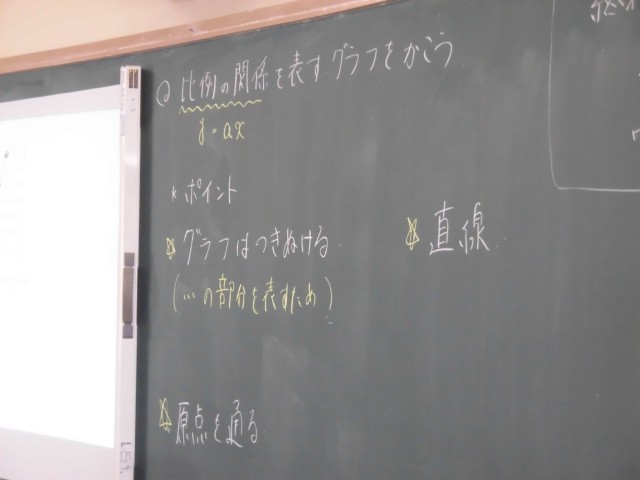 ◎ 比例の関係を表すグラフをかこう
y=ax
* ポイント
☆ グラフはつきぬける
☆ 直線
(…の部分を表すため)
☆ 原点を通る